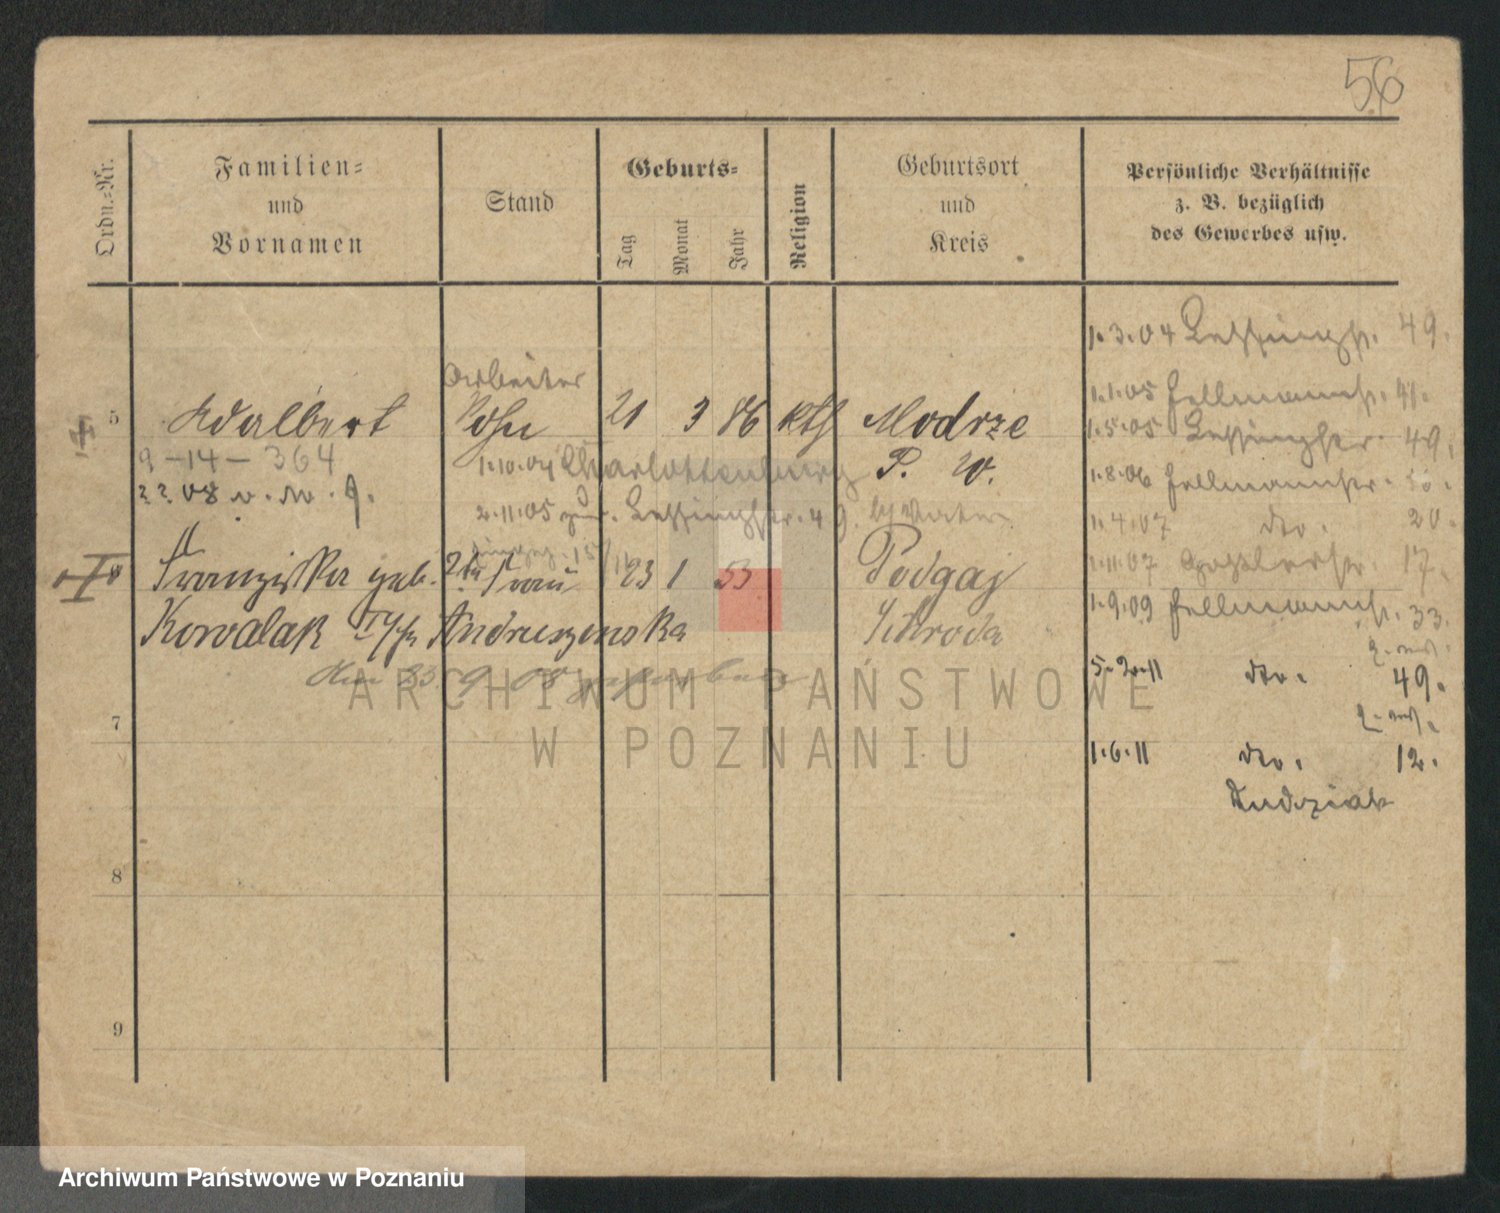 56
Ordn.-Nr.
Familien-
und
Vornamen
Stand
Geburts-
Tag Monat Jahr
Religion
Geburtsort
und
Kreis
Persönliche Verhältnisse
z. B. bezüglich
des Gewerbes usw.
1.3.04 Lessingstr. 49.
Arbeiter
1.1.05 Hellmannstr. 41.
5 Adalbert Sohn 21 3 86 kth Modrze
1.5.05 Lessingstr. 49.
9-14-364 1.10.04 Charlottenburg P. W.
1.8.06 Hellmannstr.
08
2.11.05 zur. Lessingstr. 49.
1.4.07 dto. 20.
Franziska geb. Frau 23 1 53 Podgaj
1.11.07 17.
Kowalak Andruszewska Schroda
1.9.09 Hellmannstr. 33.
5.2.11 dto. 49.
7
1.6.11 dto. 12.
Kudziak
8
9
ARCHIWUM PAŃSTWOWE
W POZNANIU
Archiwum Państwowe w Poznaniu